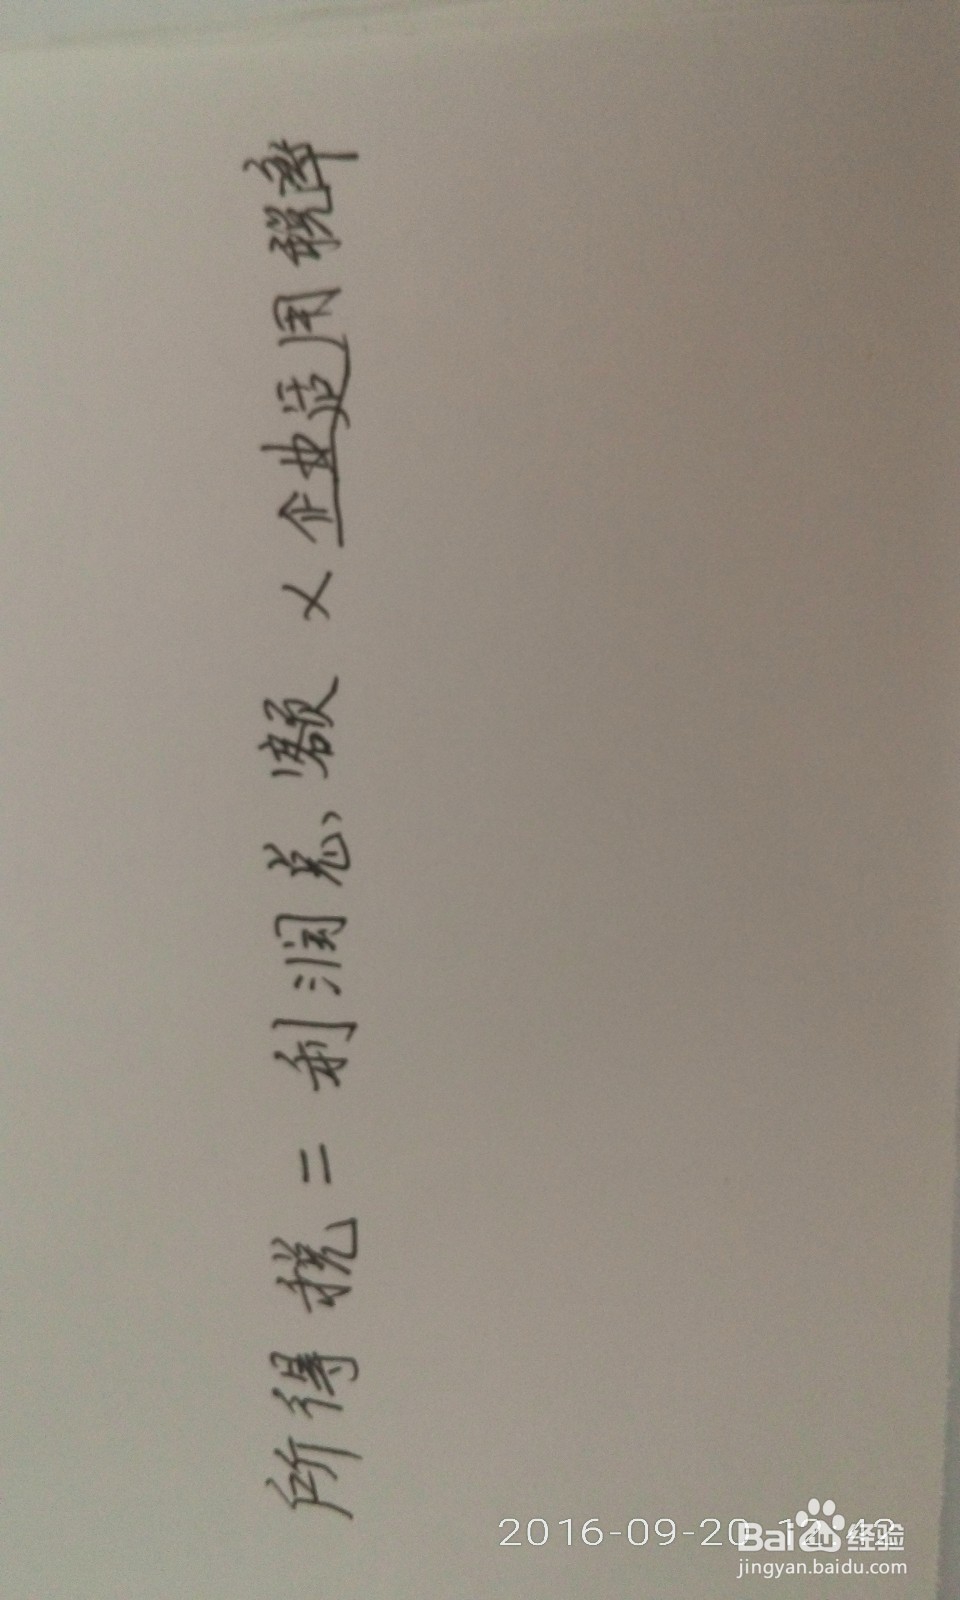 所得税=利润总额×企业适用税率
2016-09-20 12:42
Bai 经验
jingyan.baidu.com